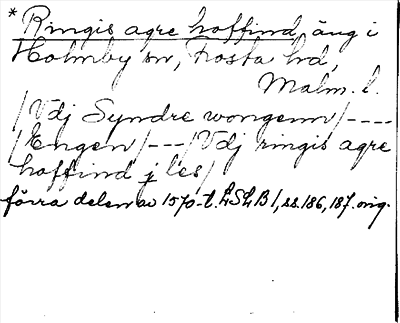 * Ringis agre hoffind, äng i
Holmby sn, Frosta hd,
Malm. l.
/Vdj Syndre wongenn/----
/Engen/---/Vdj ringis agre
hoffind j les/
förra delen av 1570-t. LSLB 1, ss. 186, 187. orig.